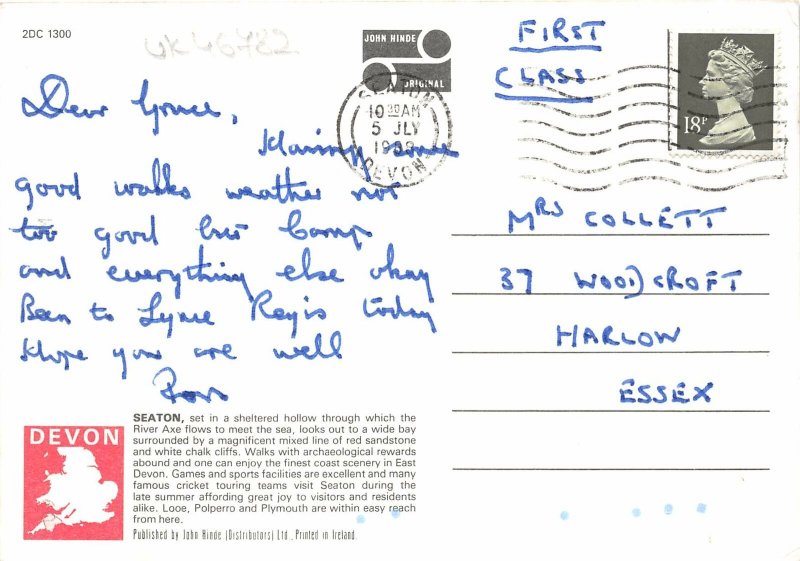 2DC 1300
UK46782
JOHN HINDE
ORIGINAL
FIRST
CLASS
SEATON
10 30 AM
5 JLY
DEVON
18P
Dear
Having some
good walks weather not
too good but Camp
and everything else okay
Been to Lyme Regis today
Hope you are well
MRS COLLETT
37 WOODCROFT
HARLOW
ESSEX
DEVON
SEATON, set in a sheltered hollow through which the
River Axe flows to meet the sea, looks out to a wide bay
surrounded by a magnificent mixed line of red sandstone
and white chalk cliffs. Walks with archaeological rewards
abound and one can enjoy the finest coast scenery in East
Devon. Games and sports facilities are excellent and many
famous cricket touring teams visit Seaton during the
late summer affording great joy to visitors and residents
alike. Looe, Polperro and Plymouth are within easy reach
from here.
Published by John Hinde (Distributors) Ltd., Printed in Ireland.